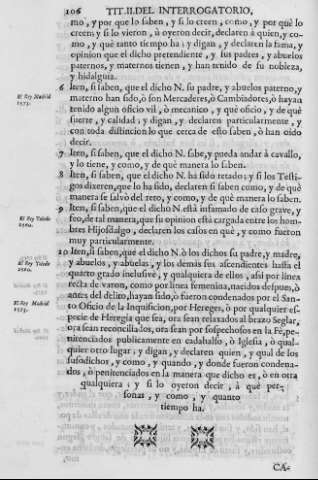 106 TIT.II.DEL INTERROGATORIO,
mo, y por que lo saben, y si lo creen, como, y por què lo
creem; y si lo vieron, ò oyeron decir, declaren à quien, y co-
mo, y què tanto tiempo ha; y digan, y declaren la fama, y
opinion que el dicho pretendiente, y sus padres, y abuelos
paternos, y maternos tienen, y han tenido de su nobleza,
y hidalguia.
6 Iten, si saben, que el dicho N. su padre, y abuelos paterno, y
El Rey Madrid
1573.
materno han sido, ò son Mercaderes, ò Cambiadores, ò hayan
tenido algun oficio vil, ò mecanico, y què oficio, y de què
suerte, y calidad; y digan, y declaren particularmente, y
con toda distincion lo que cerca de esto saben, ò han oido
decir.
7 Iten, si saben, que el dicho N. sabe, y pueda andar à cavallo,
y lo tiene, y como, y de què manera lo saben.
8 Iten, si saben, que el dicho N. ha sido retado; y si los Testi-
gos dixeren, que lo ha sido, declaren si saben como, y de què
manera se salvò del reto, y como, y de què manera lo saben.
9 Iten, si saben, que el dicho N. està infamado de caso grave, y
El Rey Toledo
1560.
feo, de tal manera, que su opinion està cargada entre los hom-
bres Hijosdalgo, declaren los casos en què, y como fueron
muy particularmente.
10 Iten, si saben, que el dicho N. ò los dichos su padre, y madre,
El Rey Toledo
1560.
y abuelos, y abuelas, y los demàs sus ascendientes hasta el
quarto grado inclusivè, y qualquiera de ellos, assi por linea
recta de varon, como por linea femenina, nacidos despues, ò
antes del delito, hayan sido, ò fueron condenados por el San-
El Rey Madrid
1573.
to Oficio de la Inquisicion, por Hereges, ò por qualquier es-
pecie de Heregia que sea, ora sean relaxados al brazo Seglar,
ora sean reconciliados, ora sean por sospechosos en la Fè, pe-
nitenciados publicamente en cadahalso, ò Iglesia, ò qual-
quier otro lugar; y digan, y declaren quien, y qual de los
susodichos, y como, y quando, y donde fueron condena-
dos, ò penitenciados en la manera que dicho es, ò en otra
qualquiera; y si lo oyeron decir, à què per-
sonas, y como, y quanto
tiempo ha.
CA-